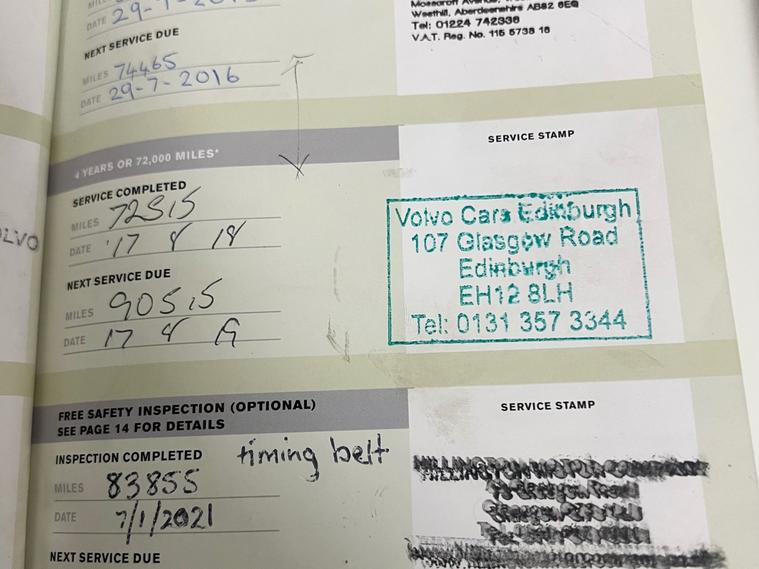 DATE 29-7-201
NEXT SERVICE DUE
MILES 74465
DATE 29-7-2016
Westhill, Aberdeenshire AB32 6EQ
Tel: 01224 742338
V.A.T. Reg. No. 115 5738 18
4 YEARS OR 72,000 MILES*
SERVICE COMPLETED
MILES 72515
DATE 17 8 18
NEXT SERVICE DUE
MILES 90515
DATE 17 8 19
SERVICE STAMP
Volvo Cars Edinburgh
107 Glasgow Road
Edinburgh
EH12 8LH
Tel: 0131 357 3344
OLVO
FREE SAFETY INSPECTION (OPTIONAL)
SEE PAGE 14 FOR DETAILS
INSPECTION COMPLETED timing belt
MILES 83855
DATE 7/1/2021
NEXT SERVICE DUE
SERVICE STAMP